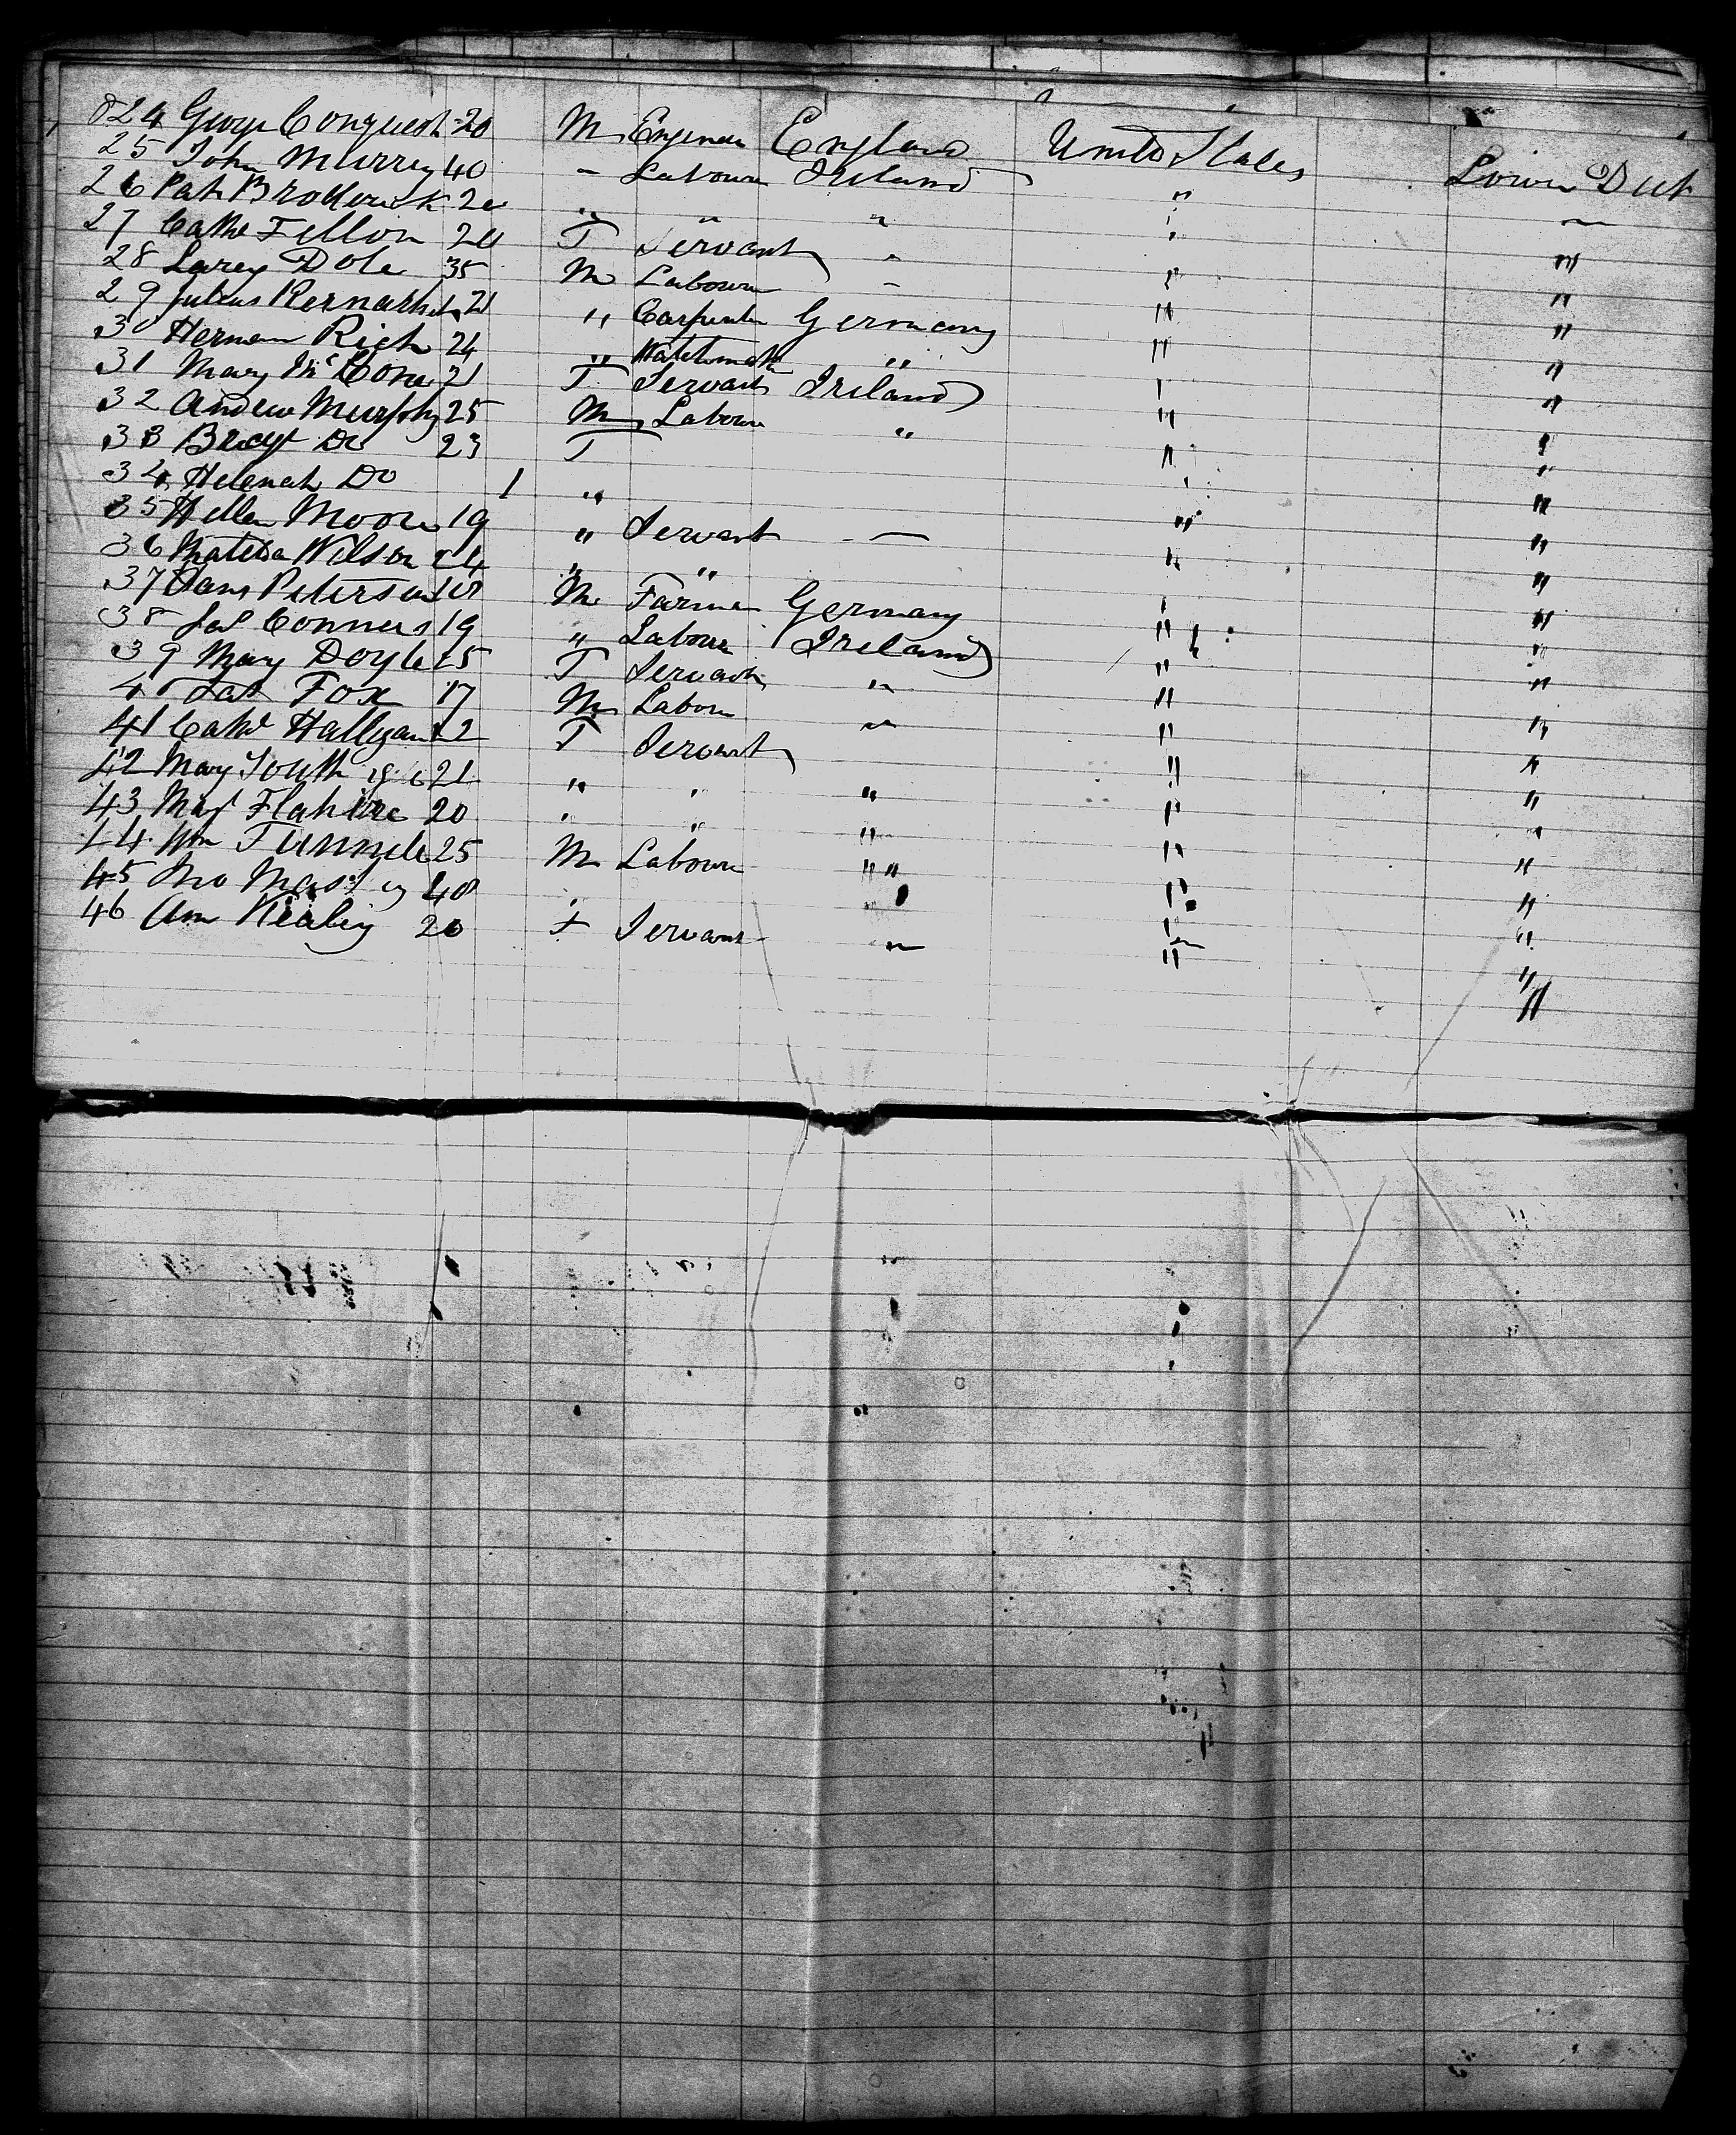 824 George Conquest 20 M Engineer England United States Lower Deck
25 John Murray 40 - Labourer Ireland " "
26 Pat Broderick 20 " " " " "
27 Cathe Fellon 20 F Servant " " "
28 Larey Dole 35 M Labourer " " "
29 Julius 21 " Carpenter Germany " "
30 Herman Rich 24 " Watchmak " " "
31 Mary McCone 21 F Servant Ireland " "
32 Andrew Murphy 25 M Labour " " "
33 Bridgt Do 23 F " "
34 Helenah Do 1 " " "
35 Hellen Moore 19 " Servant — " "
36 Matilda Wilson 24 " " " "
37 Hans Peterson 18 M Farmer Germany " "
38 Jas Conners 19 " Labour Ireland " "
39 Mary Doyle 25 F Servant " " "
40 Pat Fox 17 M Labour " " "
41 Cathe Hallgan 22 F Servant " "
42 Mary South 21 " " " " "
43 Mary 20 " " " " "
44 Wm 25 M Labour " " "
45 40 " " " "
46 Ann Healey 20 F Servant " " "